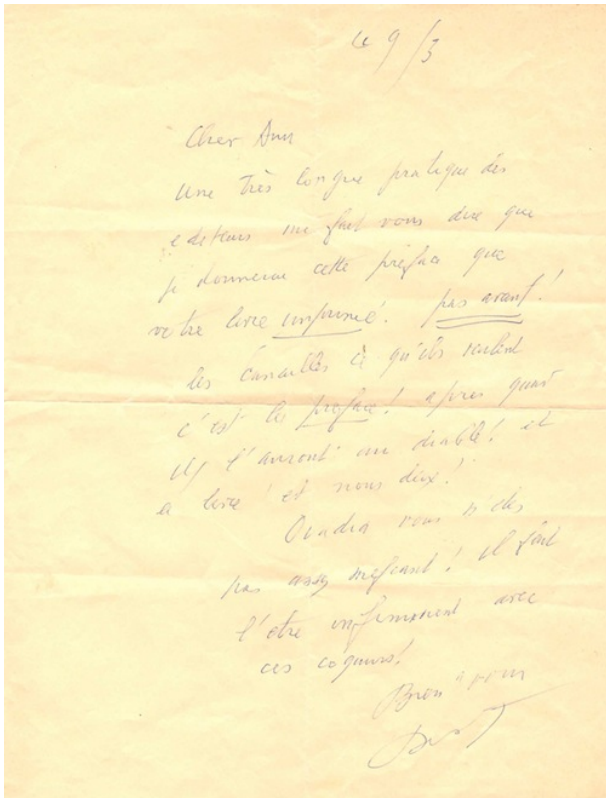 le 9/3
Cher Ami
Une très longue pratique des
editeurs me fait vous dire que
je donnerai cette preface que
votre livre imprimé! pas avant!
les canailles ce qu'ils veulent
c'est la preface! apres quoi
ils l'auront au diable! et
le livre! et nous deux!
vous n'etes
pas assez mefiant! il faut
l'etre infiniment avec
ces coquins!
Bien à vous